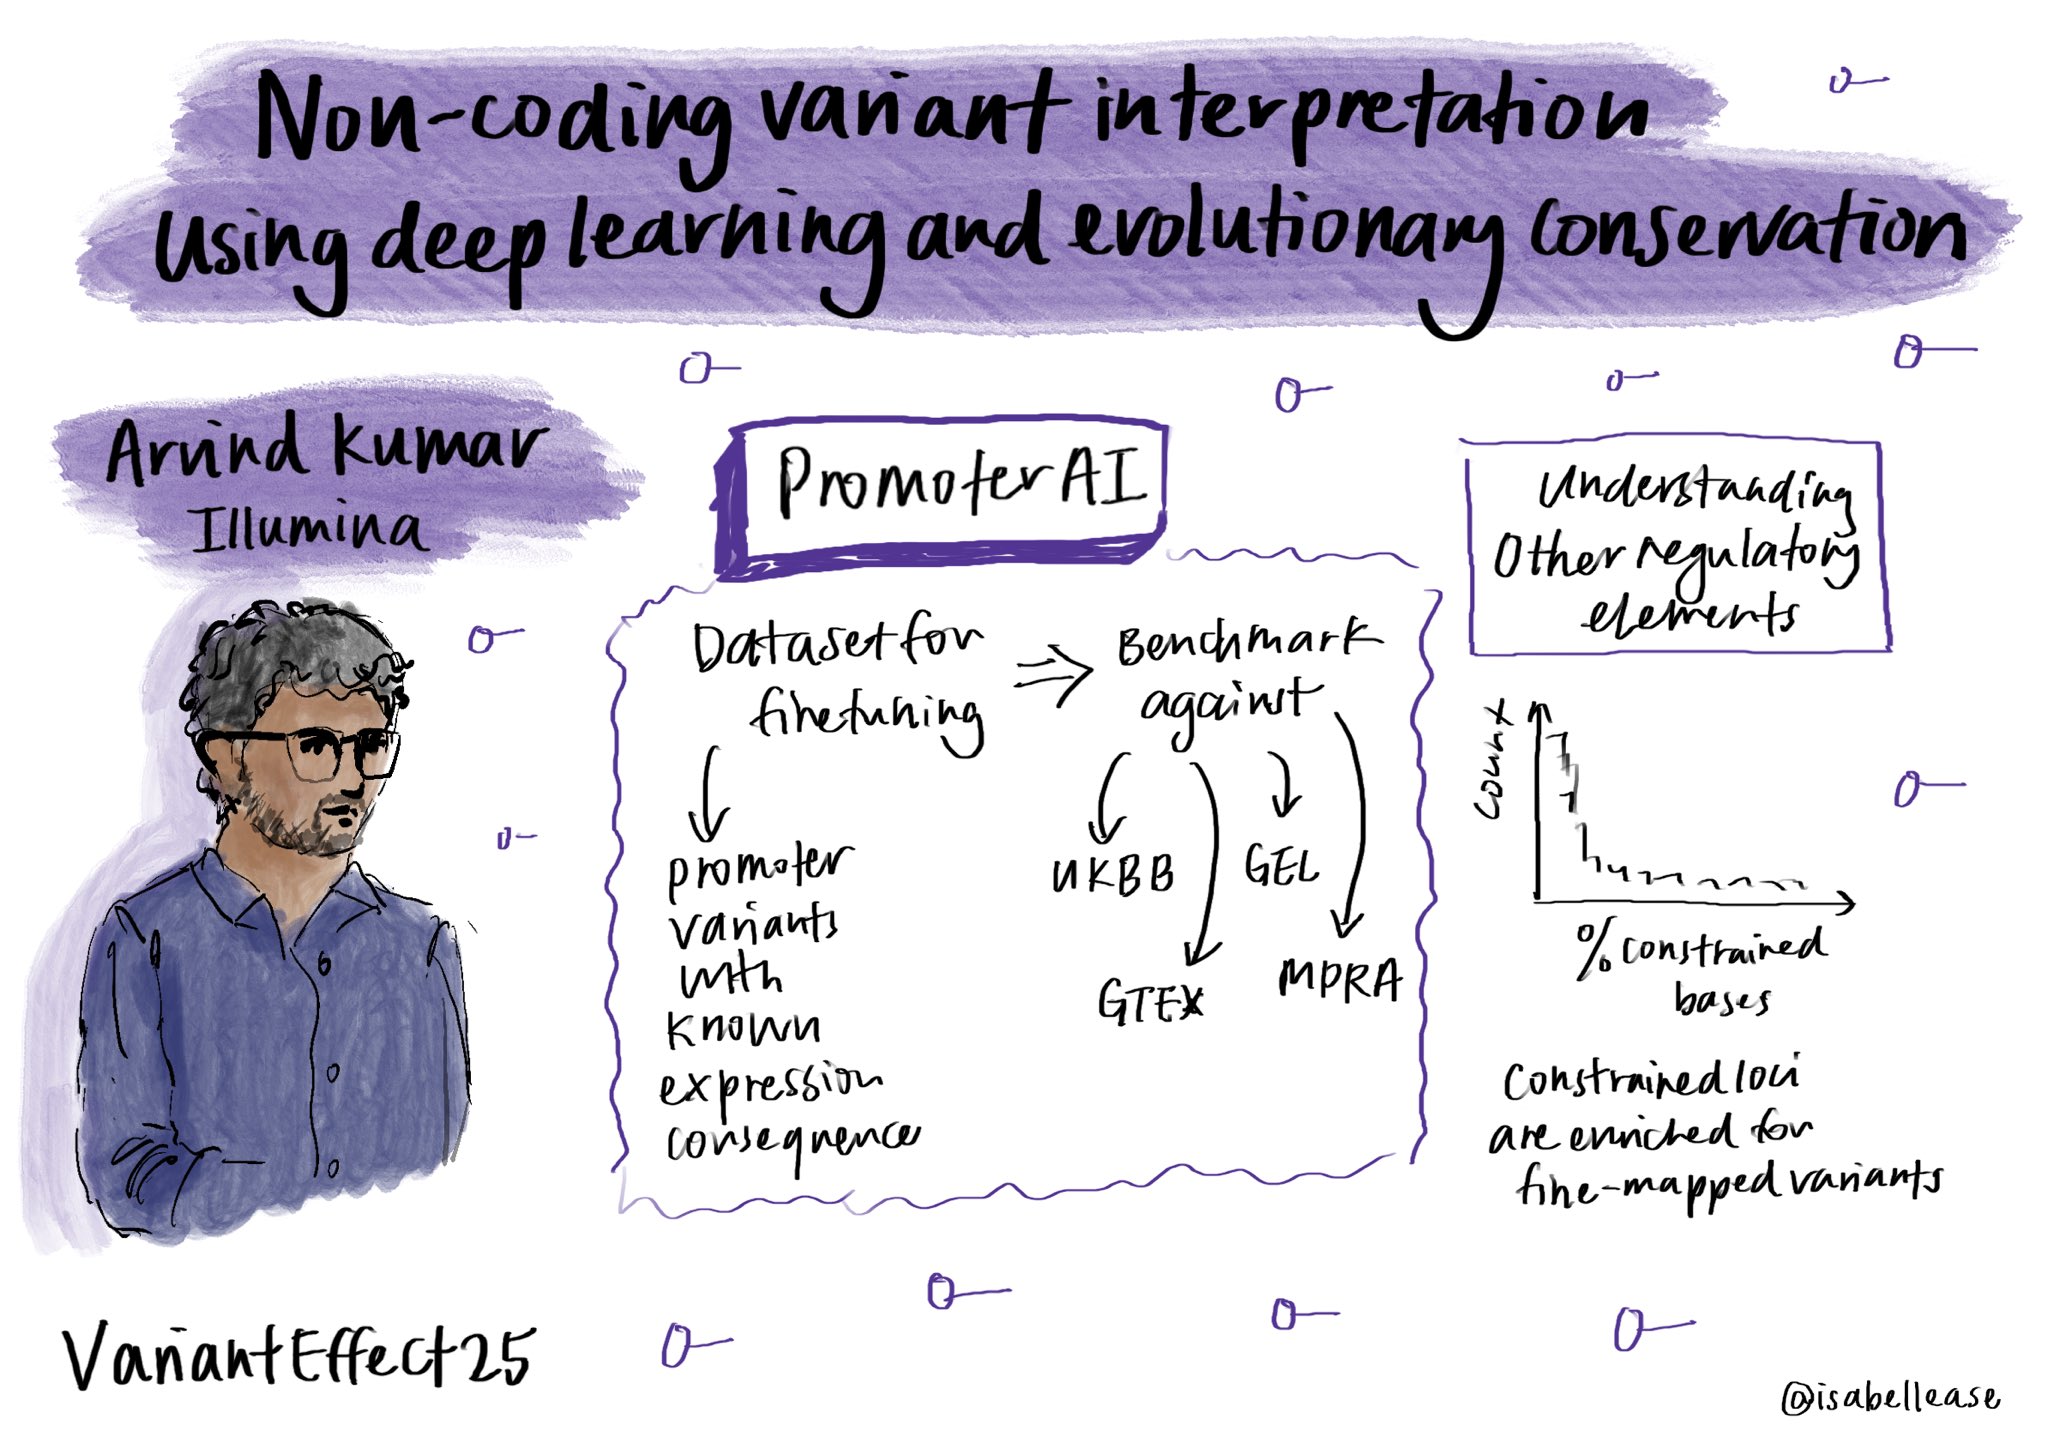 Non-coding variant interpretation
using deep learning and evolutionary conservation
Arvind Kumar
Illumina
PromoterAI
Dataset for
finetuning
promoter
variants
with
known
expression
consequence
Benchmark
against
UKBB
GEL
GTEX
MPRA
Understanding
Other regulatory
elements
Count
% constrained
bases
Constrained loci
are enriched for
fine-mapped variants
VariantEffect25
@isabellease